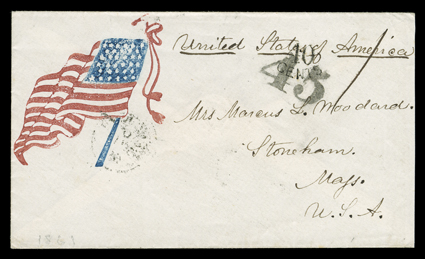 United States of America
45
Mrs Marcus L. Woodard.
Stoneham.
Mass.
U.S.A.
1863